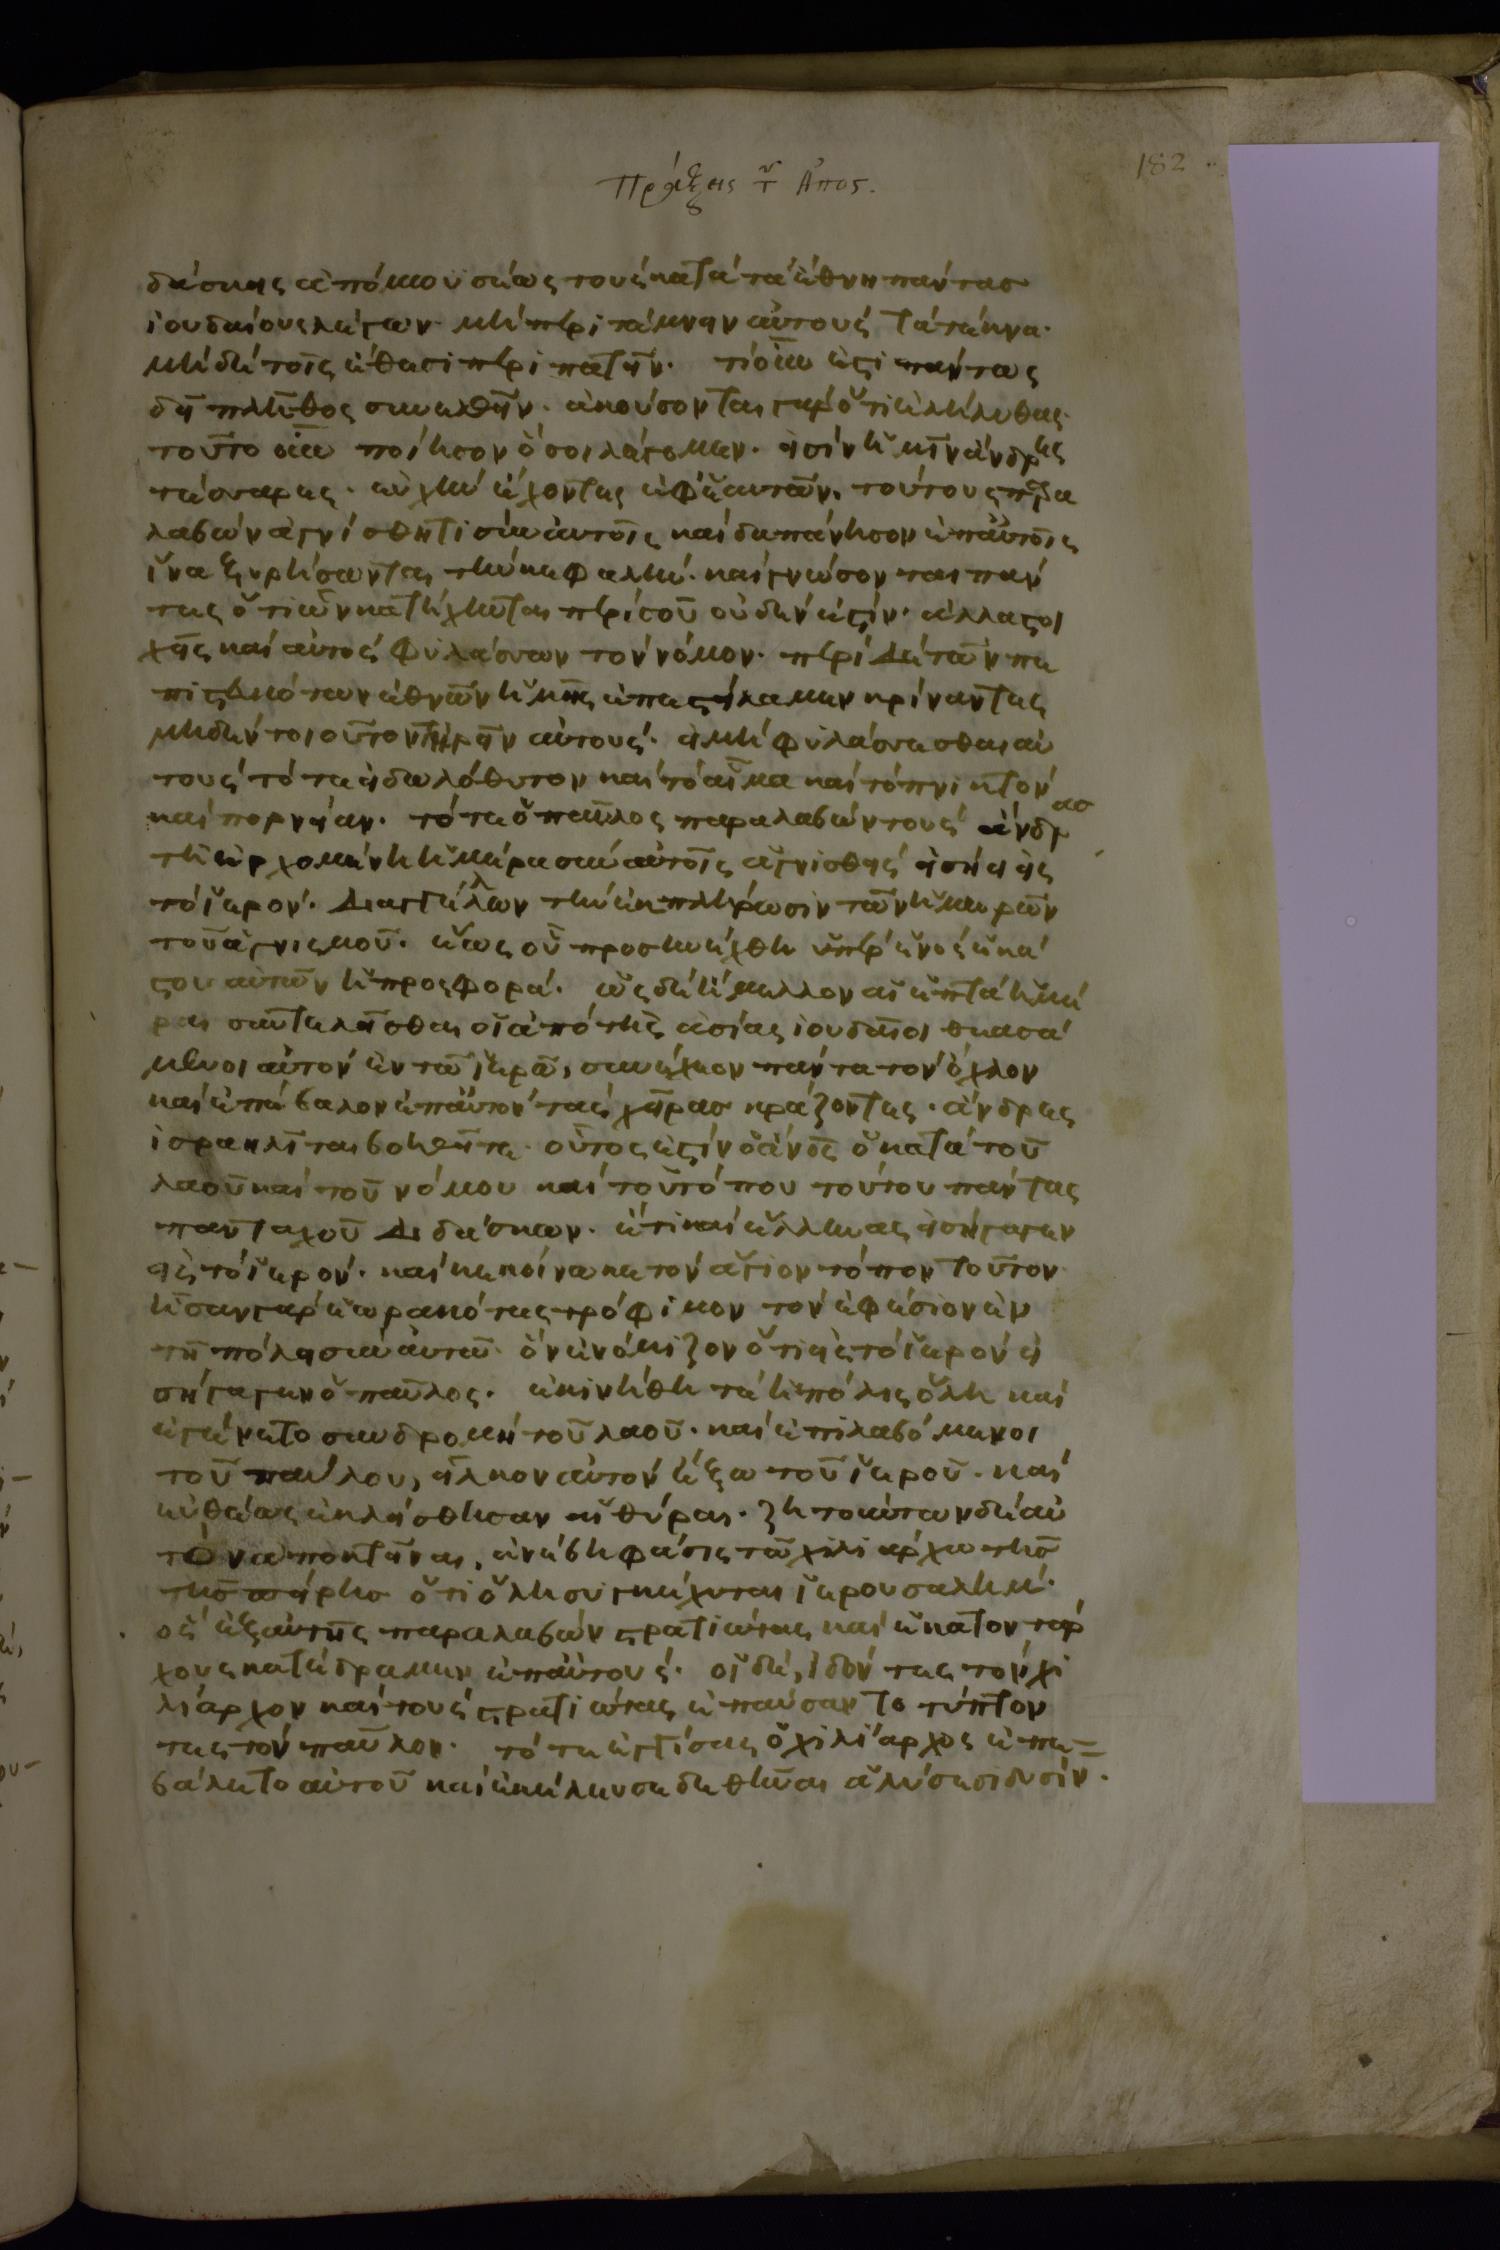 Πράξεις τ Ἀπος.
182
δάσκεις ἀπὸ μωϋσέως τοὺς κατὰ τὰ ἔθνη πάντας
ἰουδαίους λέγων μὴ περιτέμνειν αὐτοὺς τὰ τέκνα·
μηδὲ τοῖς ἔθεσι περιπατεῖν. τί οὖν ἐστι πάντως
δεῖ πλῆθος συνελθεῖν. ἀκούσονται γὰρ ὅτι ἐλήλυθας·
τοῦτο οὖν ποίησον ὅ σοι λέγομεν. εἰσὶν ἡμῖν ἄνδρες
τέσσαρες. εὐχὴν ἔχοντες ἐφ' ἑαυτῶν, τούτους παρα
λαβὼν ἁγνίσθητι σὺν αὐτοῖς καὶ δαπάνησον ἐπ' αὐτοῖς
ἵνα ξυρήσωνται τὴν κεφαλήν. καὶ γνώσονται πάν
τες ὅτι ὧν κατήχηται περὶ σοῦ οὐδέν ἐστιν. ἀλλὰ στοι
χεῖς καὶ αὐτὸς φυλάσσων τὸν νόμον. περὶ δὲ τῶν πε
πιστευκότων ἐθνῶν ἡμεῖς ἐπεστείλαμεν κρίναντες
μηδὲν τοιοῦτον τηρεῖν αὐτοὺς. εἰ μὴ φυλάσσεσθαι αὐ
τοὺς τό τε εἰδωλόθυτον καὶ τὸ αἷμα καὶ τὸ πνικτὸν
καὶ πορνείαν. τότε ὁ παῦλος παραλαβὼν τοὺς ἄνδρας
τῇ ἐρχομένῃ ἡμέρα σὺν αὐτοῖς ἁγνισθεὶς εἰσήει εἰς
τὸ ἱερόν. διαγγέλλων τὴν ἐκπλήρωσιν τῶν ἡμερῶν
τοῦ ἁγνισμοῦ. ἕως οὗ προσηνέχθη ὑπὲρ ἑνὸς ἑκά
στου αὐτῶν ἡ προσφορά. ὡς δὲ ἤμελλον αἱ ἑπτὰ ἡμέ
ραι συντελεῖσθαι οἱ ἀπὸ τῆς ἀσίας ἰουδαῖοι θεασά
μενοι αὐτὸν ἐν τῶ ἱερῶ, συνέχεον πάντα τὸν ὄχλον
καὶ ἐπέβαλον ἐπ' αὐτὸν τὰς χεῖρας κράζοντες. ἄνδρες
ἰσραηλῖται βοηθεῖτε. οὗτός ἐστιν ὁ ἄνος ὁ κατὰ τοῦ
λαοῦ καὶ τοῦ νόμου καὶ τοῦ τόπου τούτου πάντας
πανταχοῦ διδάσκων. ἔτι καὶ ἕλληνας εἰσήγαγεν
εἰς τὸ ἱερόν. καὶ κεκοίνωκε τὸν ἅγιον τόπον τοῦτον
ἦσαν γὰρ ἑωρακότες τρόφιμον τὸν ἐφέσιον ἐν
τῇ πόλει σὺν αὐτῶ ὃν ἐνόμιζον ὅτι εἰς τὸ ἱερὸν εἰ
σήγαγεν ὁ παῦλος. ἐκινήθη τὲ ἡ πόλις ὅλη καὶ
ἐγένετο συνδρομὴ τοῦ λαοῦ. καὶ ἐπιλαβόμενοι
τοῦ παύλου, εἷλκον αὐτὸν ἔξω τοῦ ἱεροῦ. καὶ
εὐθέως ἐκλείσθησαν αἱ θύραι. ζητούντων δὲ αὐ
τὸν ἀποκτεῖναι, ἀνέβη φάσις τῶ χιλιάρχω τῆς
τῆς σπείρης ὅτι ὅλη συγκέχυται ἱερουσαλήμ·
ὃς ἐξαυτῆς παραλαβὼν στρατιώτας καὶ ἑκατοντάρ
χους κατέδραμεν ἐπ' αὐτοὺς. οἱ δὲ, ἰδόντες τὸν χι
λίαρχον καὶ τοὺς στρατιώτας ἐπαύσαντο τύπτον
τες τὸν παῦλον. τότε ἐγγίσας ὁ χιλίαρχος ἐπε
βάλετο αὐτοῦ καὶ ἐκέλευσε δεθῆναι ἁλύσεσι δυσίν.